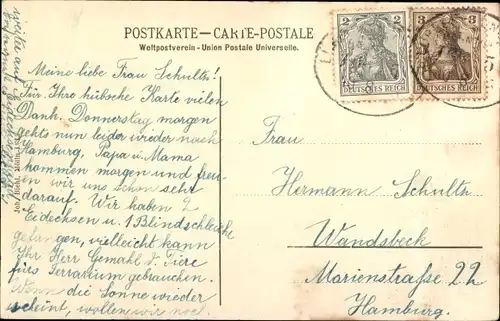 POSTKARTE – CARTE-POSTALE
Weltpostverein - Union Postale Universelle.
2 2
DEUTSCHES REICH
3 3
DEUTSCHES REICH
Meine liebe Frau Schultz!
Für Ihre hübsche Karte vielen
Dank. Donnerstag morgen
gehts nun leider wieder nach
Hamburg, Papa u. Mama
kommen morgen und freu-
en wir uns schon sehr
darauf. Wir haben 2
Eidechsen u. 1 Blindschleiche
gefangen, vielleicht kann
Ihr Herr Gemahl d. Tiere
fürs Terrarium gebrauchen.
Wenn die Sonne wieder
scheint, wollen wir noch
weitere auf
Frau
Hermann Schultz
Wandsbeck
Marienstraße 22
Hamburg.